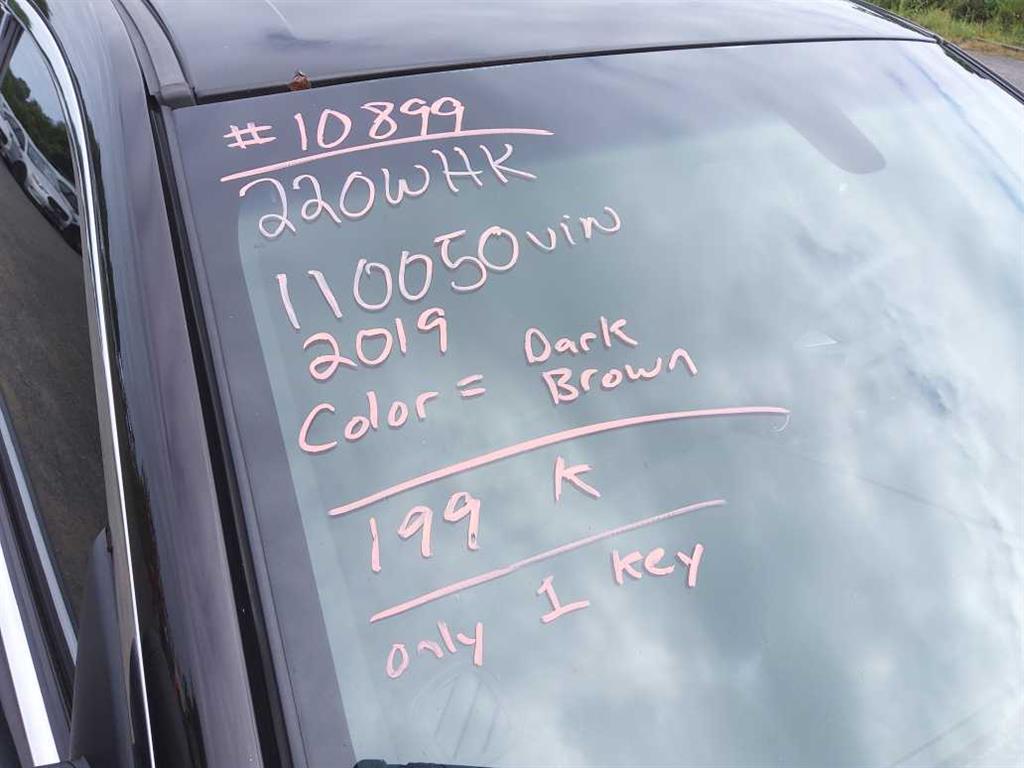 #10899
220WHK
110050vin
2019
Color = Dark Brown
199 K
only 1 key